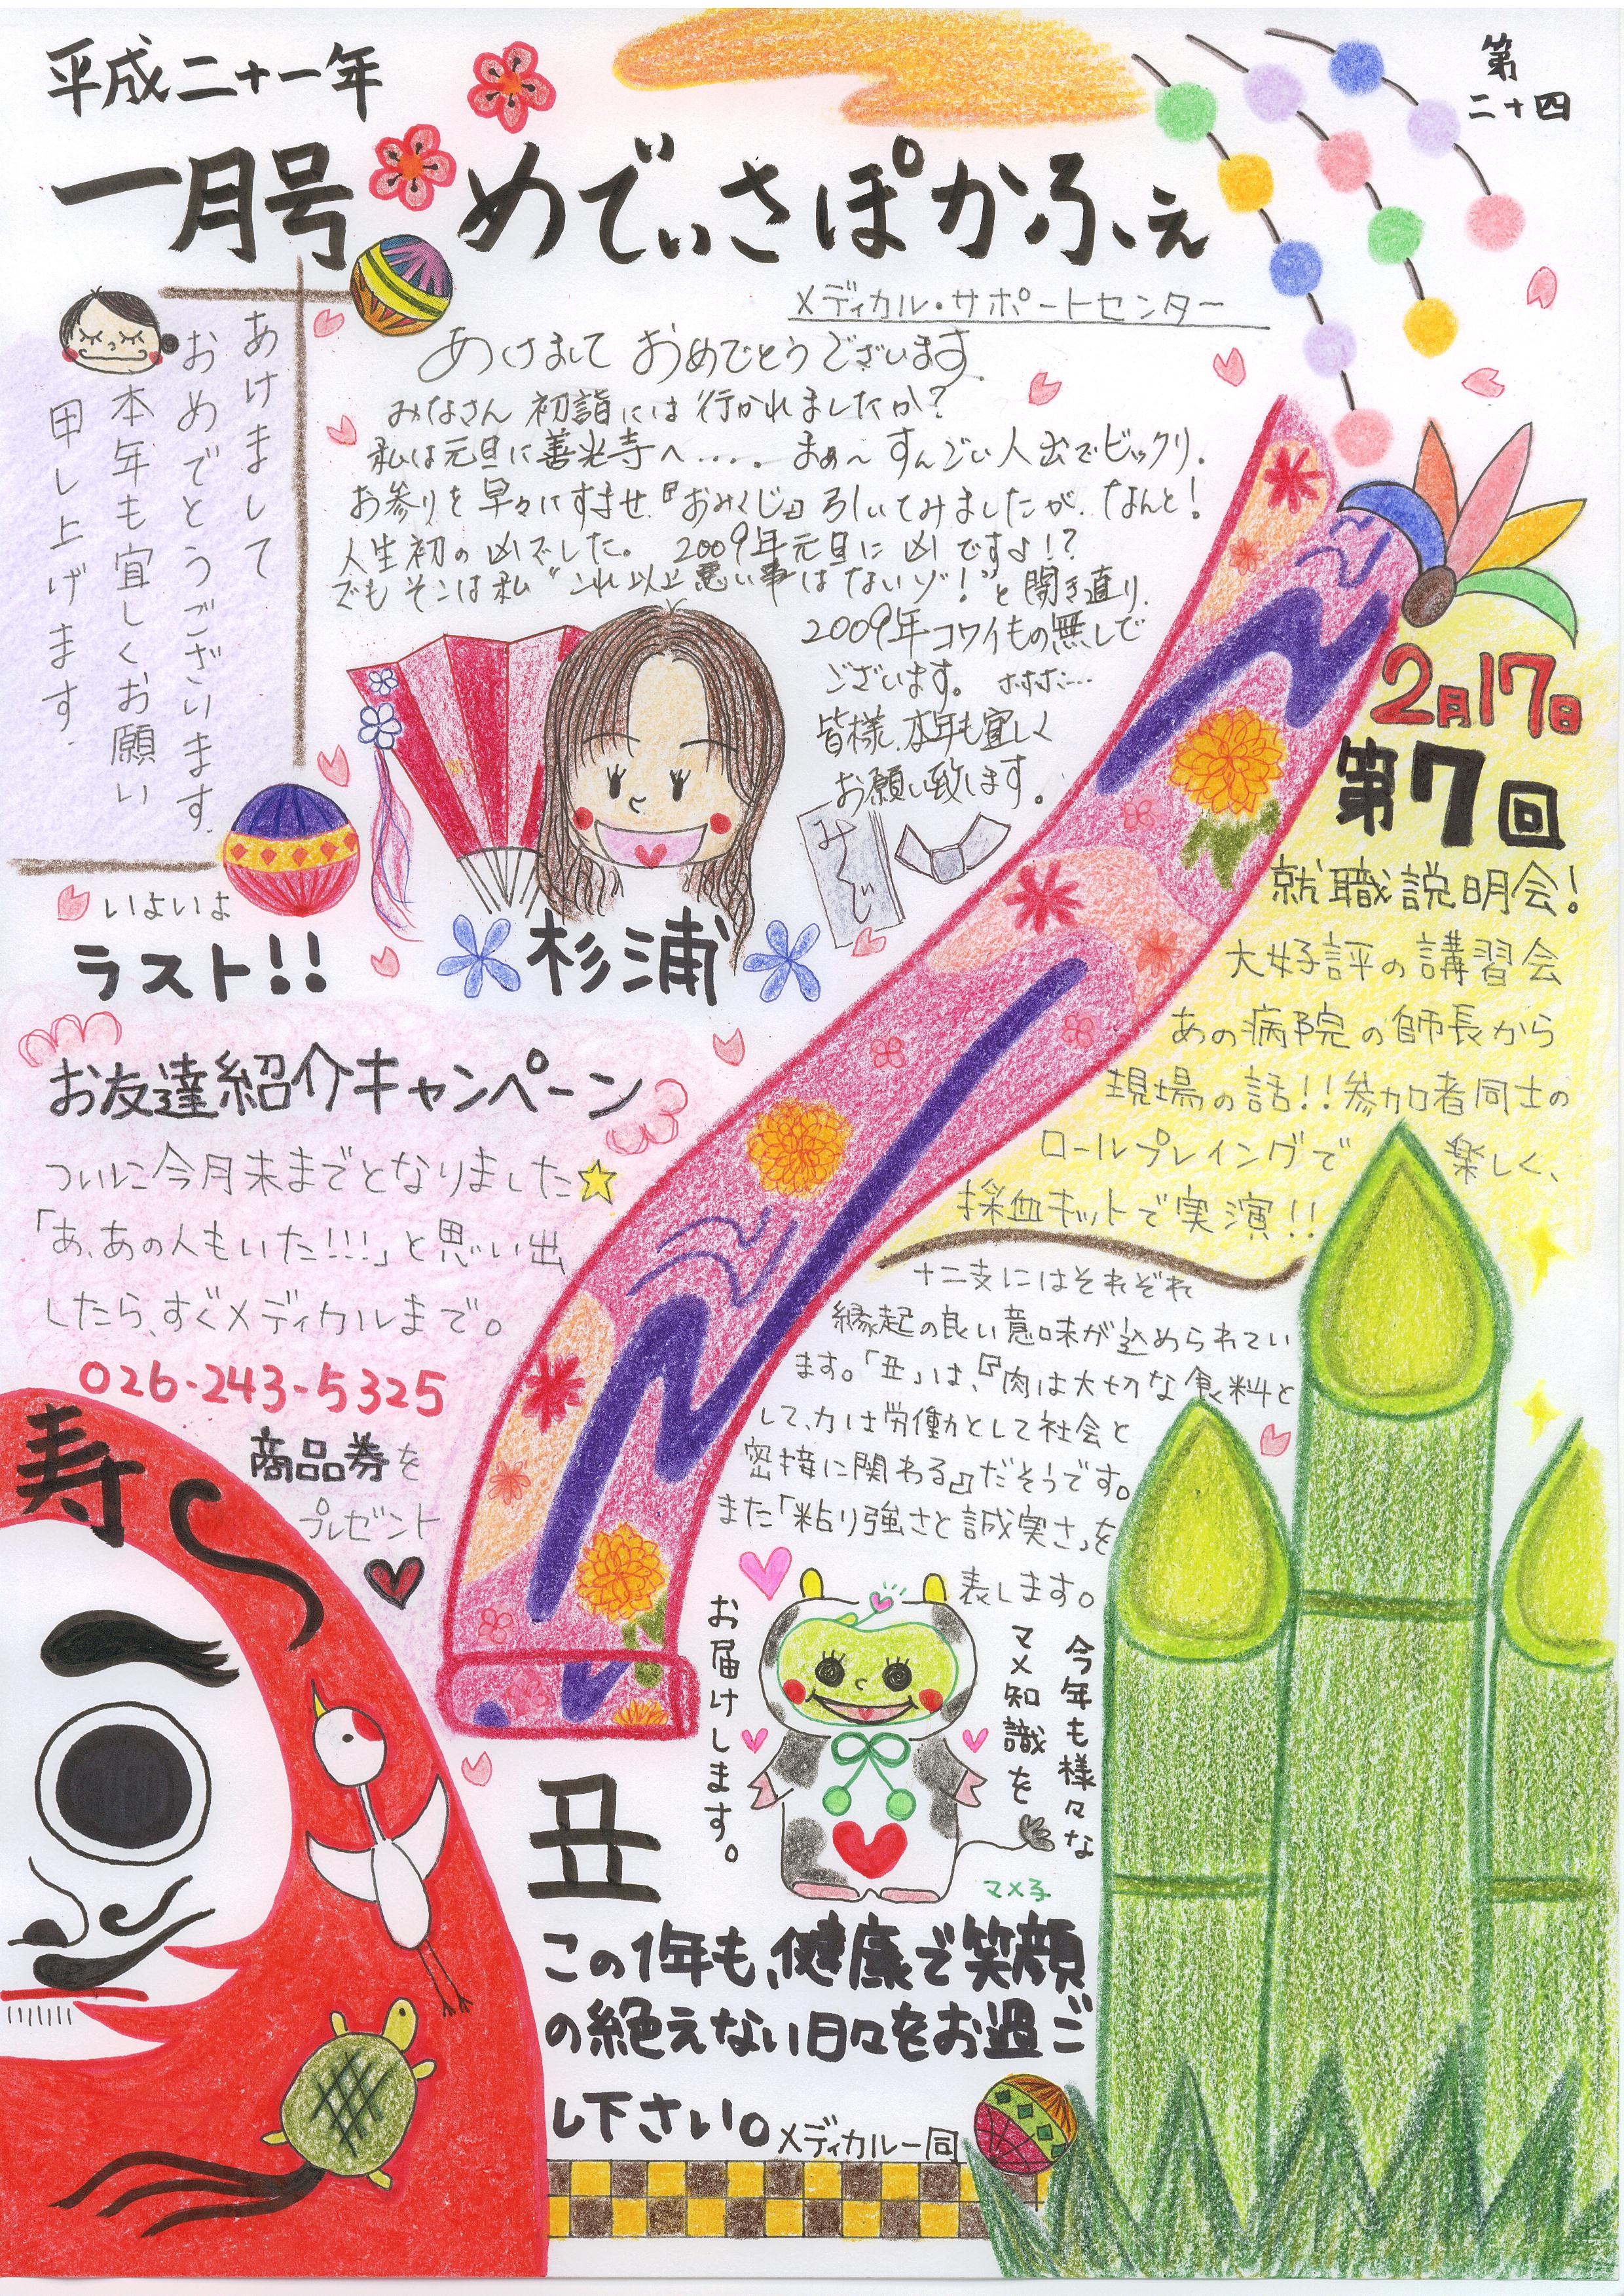 平成二十一年
第
二十四
一月号 めでぃさぽかふぇ
メディカル・サポートセンター
あけまして
おめでとうございます。
本年も宜しくお願い
申し上げます。
あけまして おめでとうございます。
みなさん 初詣には 行かれましたか?
私は元旦に善光寺へ・・・・。まぁ〜すんごい人出でビックリ。
お参りを早々にすませ『おみくじ』引いてみましたが、なんと!
人生初の凶でした。 2009年元旦に凶ですよ!?
でもそこは私“これ以上悪い事はないゾ!”と開き直り、
2009年コワイもの無しで
ございます。 ホホホ…
皆様、本年も宜しく
お願い致します。
みくじ
杉浦
2月17日
第7回
就職説明会!
大好評の講習会
あの病院の師長から
現場の話!!参加者同士の
ロールプレイングで 楽しく、
採血キットで実演!!
いよいよ
ラスト!!
お友達紹介キャンペーン
ついに今月末までとなりました☆
「あ、あの人もいた!!!」と思い出
したら、すぐメディカルまで。
026-243-5325
商品券を
プレゼント
寿
十二支にはそれぞれ
縁起の良い意味が込められてい
ます。「丑」は、『肉は大切な食料と
して、力は労働力として社会と
密接に関わる』だそうです。
また「粘り強さと誠実さ」を
表します。
今年も様々な
マメ知識を
お届けします。
マメ子
丑
この1年も、健康で笑顔
の絶えない日々をお過ご
し下さい。メディカル一同